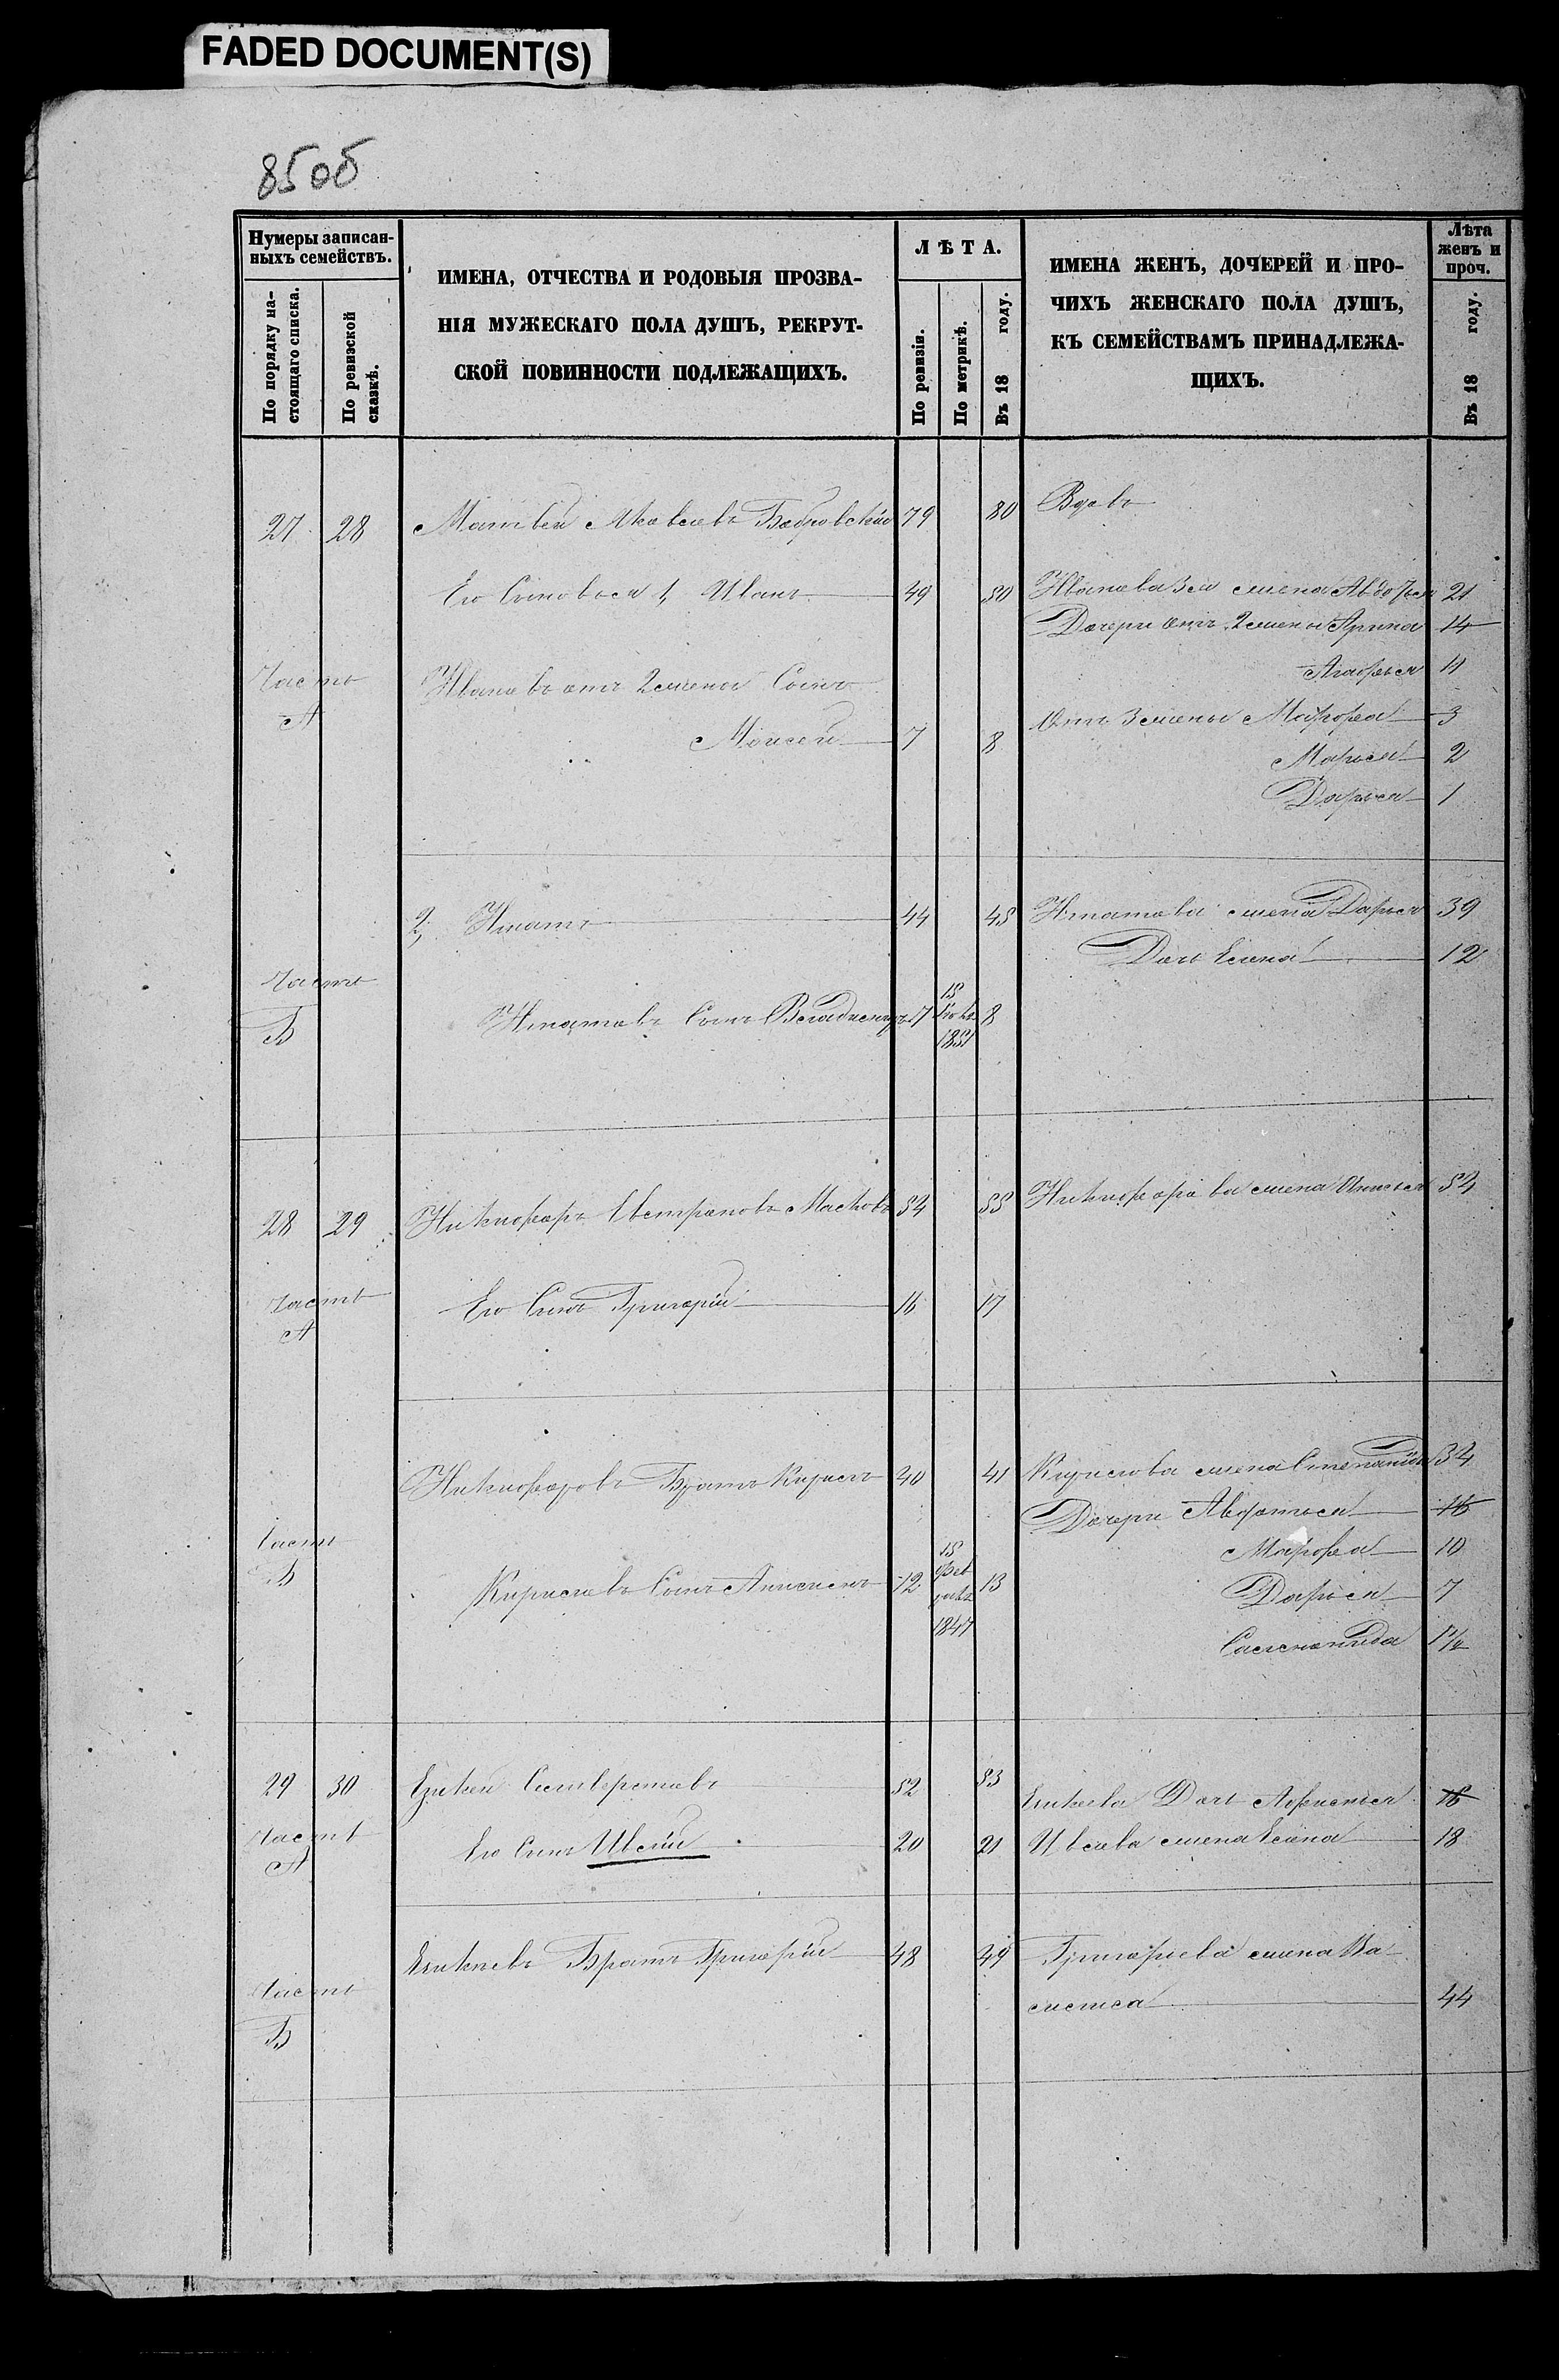 FADED DOCUMENT(S)
85об
Нумеры записан-
ныхъ семействъ.
По порядку на-
стоящаго списка.
По ревизской
сказкѣ.
ИМЕНА, ОТЧЕСТВА И РОДОВЫЯ ПРОЗВА-
НІЯ МУЖЕСКАГО ПОЛА ДУШЪ, РЕКРУТ-
СКОЙ ПОВИННОСТИ ПОДЛЕЖАЩИХЪ.
ЛѢТА.
По ревизіи.
По метрикѣ.
Въ 18 году.
ИМЕНА ЖЕНЪ, ДОЧЕРЕЙ И ПРО-
ЧИХЪ ЖЕНСКАГО ПОЛА ДУШЪ,
КЪ СЕМЕЙСТВАМЪ ПРИНАДЛЕЖА-
ЩИХЪ.
Лѣта
женъ и
проч.
Въ 18 году.
27 28 Матвей Яковлевъ Бобровскій 79 80 Вдовъ
Его Сыновья 1, Иванъ 49 50 Иванова 3я жена Авдотья 21
Дочери отъ 2 жены Арина 14
Часть А
Ивановъ отъ 2 жены Сынъ
Агафья 11
Моисей 7 8
Отъ 3 жены Марфа 3
Марья 2
Дарья 1
2, Игнатъ 44 45 Игнатова жена Дарья 39
Дочь Елена 12
Часть Б
Игнатовъ Сынъ Владимиръ 7 15 Іюля 1851 8
28 29 Никифоръ Евстратовъ Масковъ 54 55 Никифорова жена Анисья 54
Часть А
Его Сынъ Григорій 16 17
Никифоровъ Братъ Кирилъ 40 41 Кирилова жена Степанида 34
Дочери Авдотья 16
Марфа 10
Часть Б
Кириловъ Сынъ 12 15 февраля 1847 13
Дарья 7
1/2
29 30 Еликей Селиверстовъ 52 53
Еликеева Дочь Афимья 16
Часть А
Его Сынъ Ивлій 20 21 Ивлева жена Елена 18
Еликеевъ Братъ Григорій 48 49 Григорьева жена Ва-
Часть Б
силиса 44